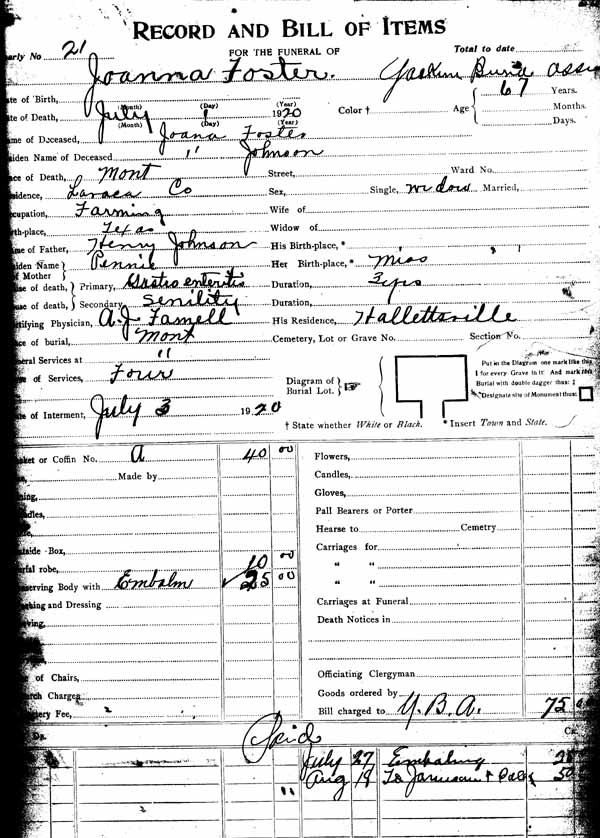 RECORD AND BILL OF ITEMS
FOR THE FUNERAL OF
arly No 21 Total to date
Joanna Foster.
of Birth, (Month) (Day) (Year) 67 Years.
te of Death, July 1 1920 Color † Age Months.
(Month) (Day) (Year) Days.
me of Deceased Joana Foster
iden Name of Deceased " Johnson
ce of Death, Mont Street, Ward No.
idence, Lavaca Co Sex, Single, widow Married,
cupation, Farming Wife of
th-place, Texas Widow of
me of Father, Henry Johnson His Birth-place, *
iden Name of Mother Pennie Her Birth-place, * Miss
se of death, Primary, Gastro enteritis Duration, 3 yrs
se of death, Secondary Senility Duration,
tifying Physician, A. J. Farnell His Residence, Hallettsville
ce of burial, Mont Cemetery, Lot or Grave No. Section No.
neral Services at "
e of Services, Four
Diagram of Burial Lot.
Put in the Diagram one mark like this
I for every Grave in it: And mark this
Burial with double dagger thus: ‡
*Designate site of Monument thus:
te of Interment, July 3 1920
† State whether White or Black. * Insert Town and State.
sket or Coffin No. A 40 00 Flowers,
Made by Candles,
Gloves,
Pall Bearers or Porter
Hearse to Cemetry
tside Box, Carriages for
rial robe, 10 00 " "
serving Body with Embalm 25 00 " "
shing and Dressing Carriages at Funeral
Death Notices in
e of Chairs, Officiating Clergyman
rch Charges Goods ordered by
tery Fee, Bill charged to Y. B. A. 75
Dr. Cr.
Paid
July 27 Embalming 25
Aug 19 To
"